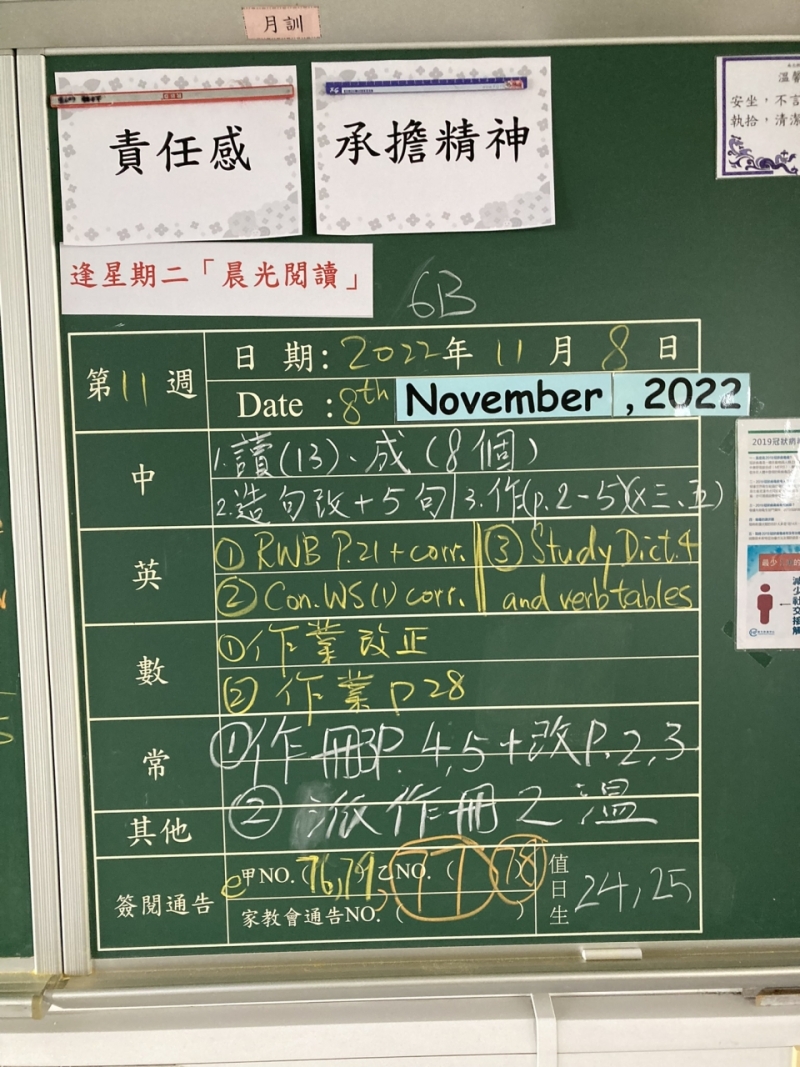 月訓
責任感
承擔精神
溫馨
安坐，不言
執拾，清潔
逢星期二「晨光閱讀」
6B
第11週
日期：2022年11月8日
Date：8th November, 2022
中
1.讀(13)、成(8個)
2.造句改+5句 3.作(p.2-5)(x三、五)
英
① RWB P.21 + corr.
② Con. WS(1) corr.
③ Study Dict.4
and verb tables
數
①作業改正
②作業p28
常
①作冊3P.4,5+改P.2,3
其他
②派作冊2溫
簽閱通告
e甲NO.(76,79)乙NO.(77)(78)
家教會通告NO.( )
值日生
24,25
2019冠狀病
減少社交接